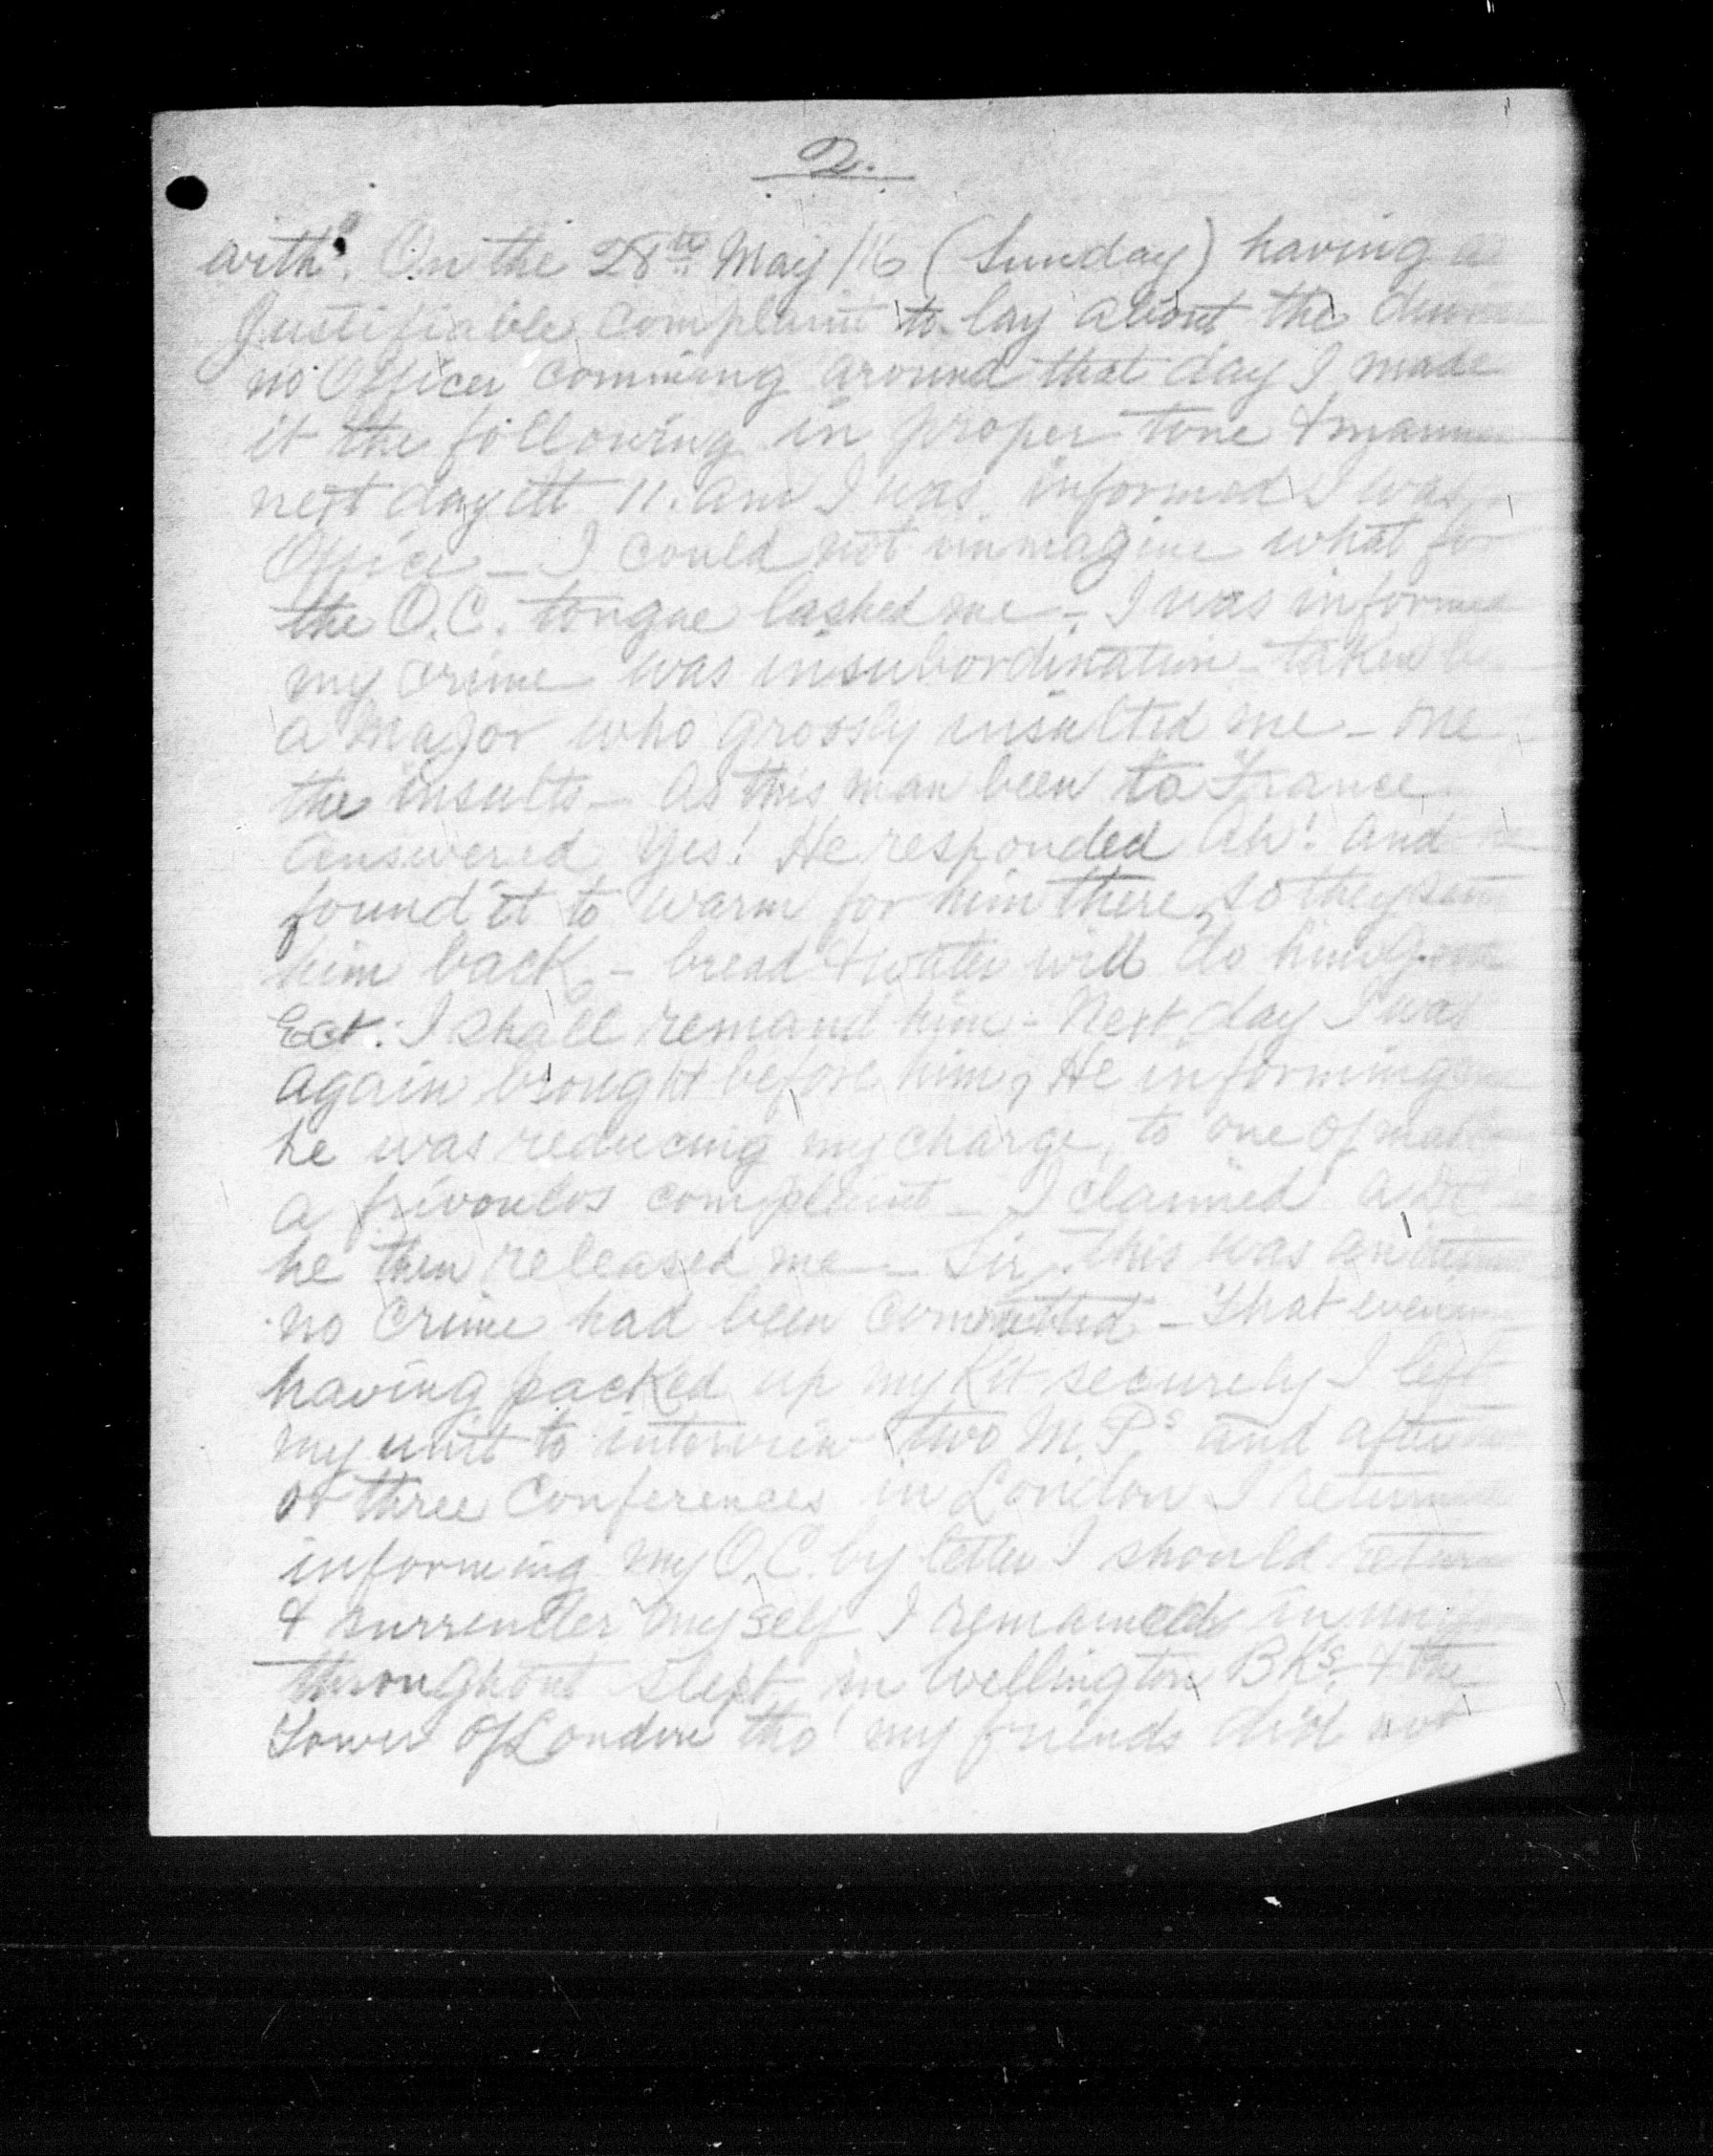 2.
with. On the 28th May/16 (Sunday) having a
Justifiable complaint to lay about the
no Officer comming around that day I made
it the following in proper tone & manner
next day att 11. am I was informed I was
Office - I could not immagine what for
the O.C. tongue lashed me - I was informed
my crime was insubordination - taken
a Major who grossly insulted me - one
the insults - As this man been to France
answered Yes! He responded Ah! and
found it to warm for him there, so they sent
him back, - bread & water will do him good
Ect. I shall remand him - Next day I was
again brought before him, He informing
he was reducing my charge, to one of
a frivoulos complaint - I claimed a
he then released me - Sir, this was an
no crime had been committed - that evening
having packed up my Kit securely I left
my unit to interview two M.Ps and after
or three Conferences in London I returned
informing my O.C. by letter I should return
& surrender myself I remained in
throughout slept in Wellington BKs. & the
Tower of London tho' my friends did not